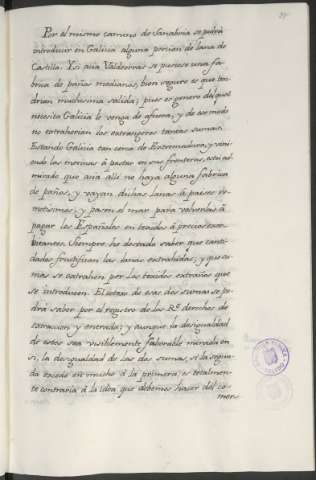 Por el mismo camino de Sanabria se podrá
introducir en Galicia alguna porcion de lana de
Castilla. Y si acia Valdeorras se pusiese una fa-
brica de paños medianos, bien seguro es que ten-
drian muchisima salida; pues es genero del qual
necesita Galicia le venga de afuera, y de ese modo
no extraherian los extrangeros tantas sumas.
Estando Galicia tan cerca de Extremadura, y vini-
endo las merinas á pastar en sus fronteras, estoi ad-
mirado que acia alli no haya alguna fabrica
de paños, y vayan dichas lanas á paeses re-
motisimos y pasen el mar para volverlas á
pagar los Españoles en texidos á precios exor-
vitantes. Siempre he deseado saber que canti-
dades fructifican las lanas extrahidas; y que su-
mas se extrahen por los texidos extraños que
se introducen. El total de esas dos sumas se po-
drá saber por el registro de los R.s derechos de
extraccion y entrada; y aunque la desigualdad
de estos sea visiblemente faborable mirada en
si, la desigualdad de las dos sumas, si la segun-
da excede en mucho á la primera, es totalmen-
te contraria á la idea que debemos hacer del co-
merc-